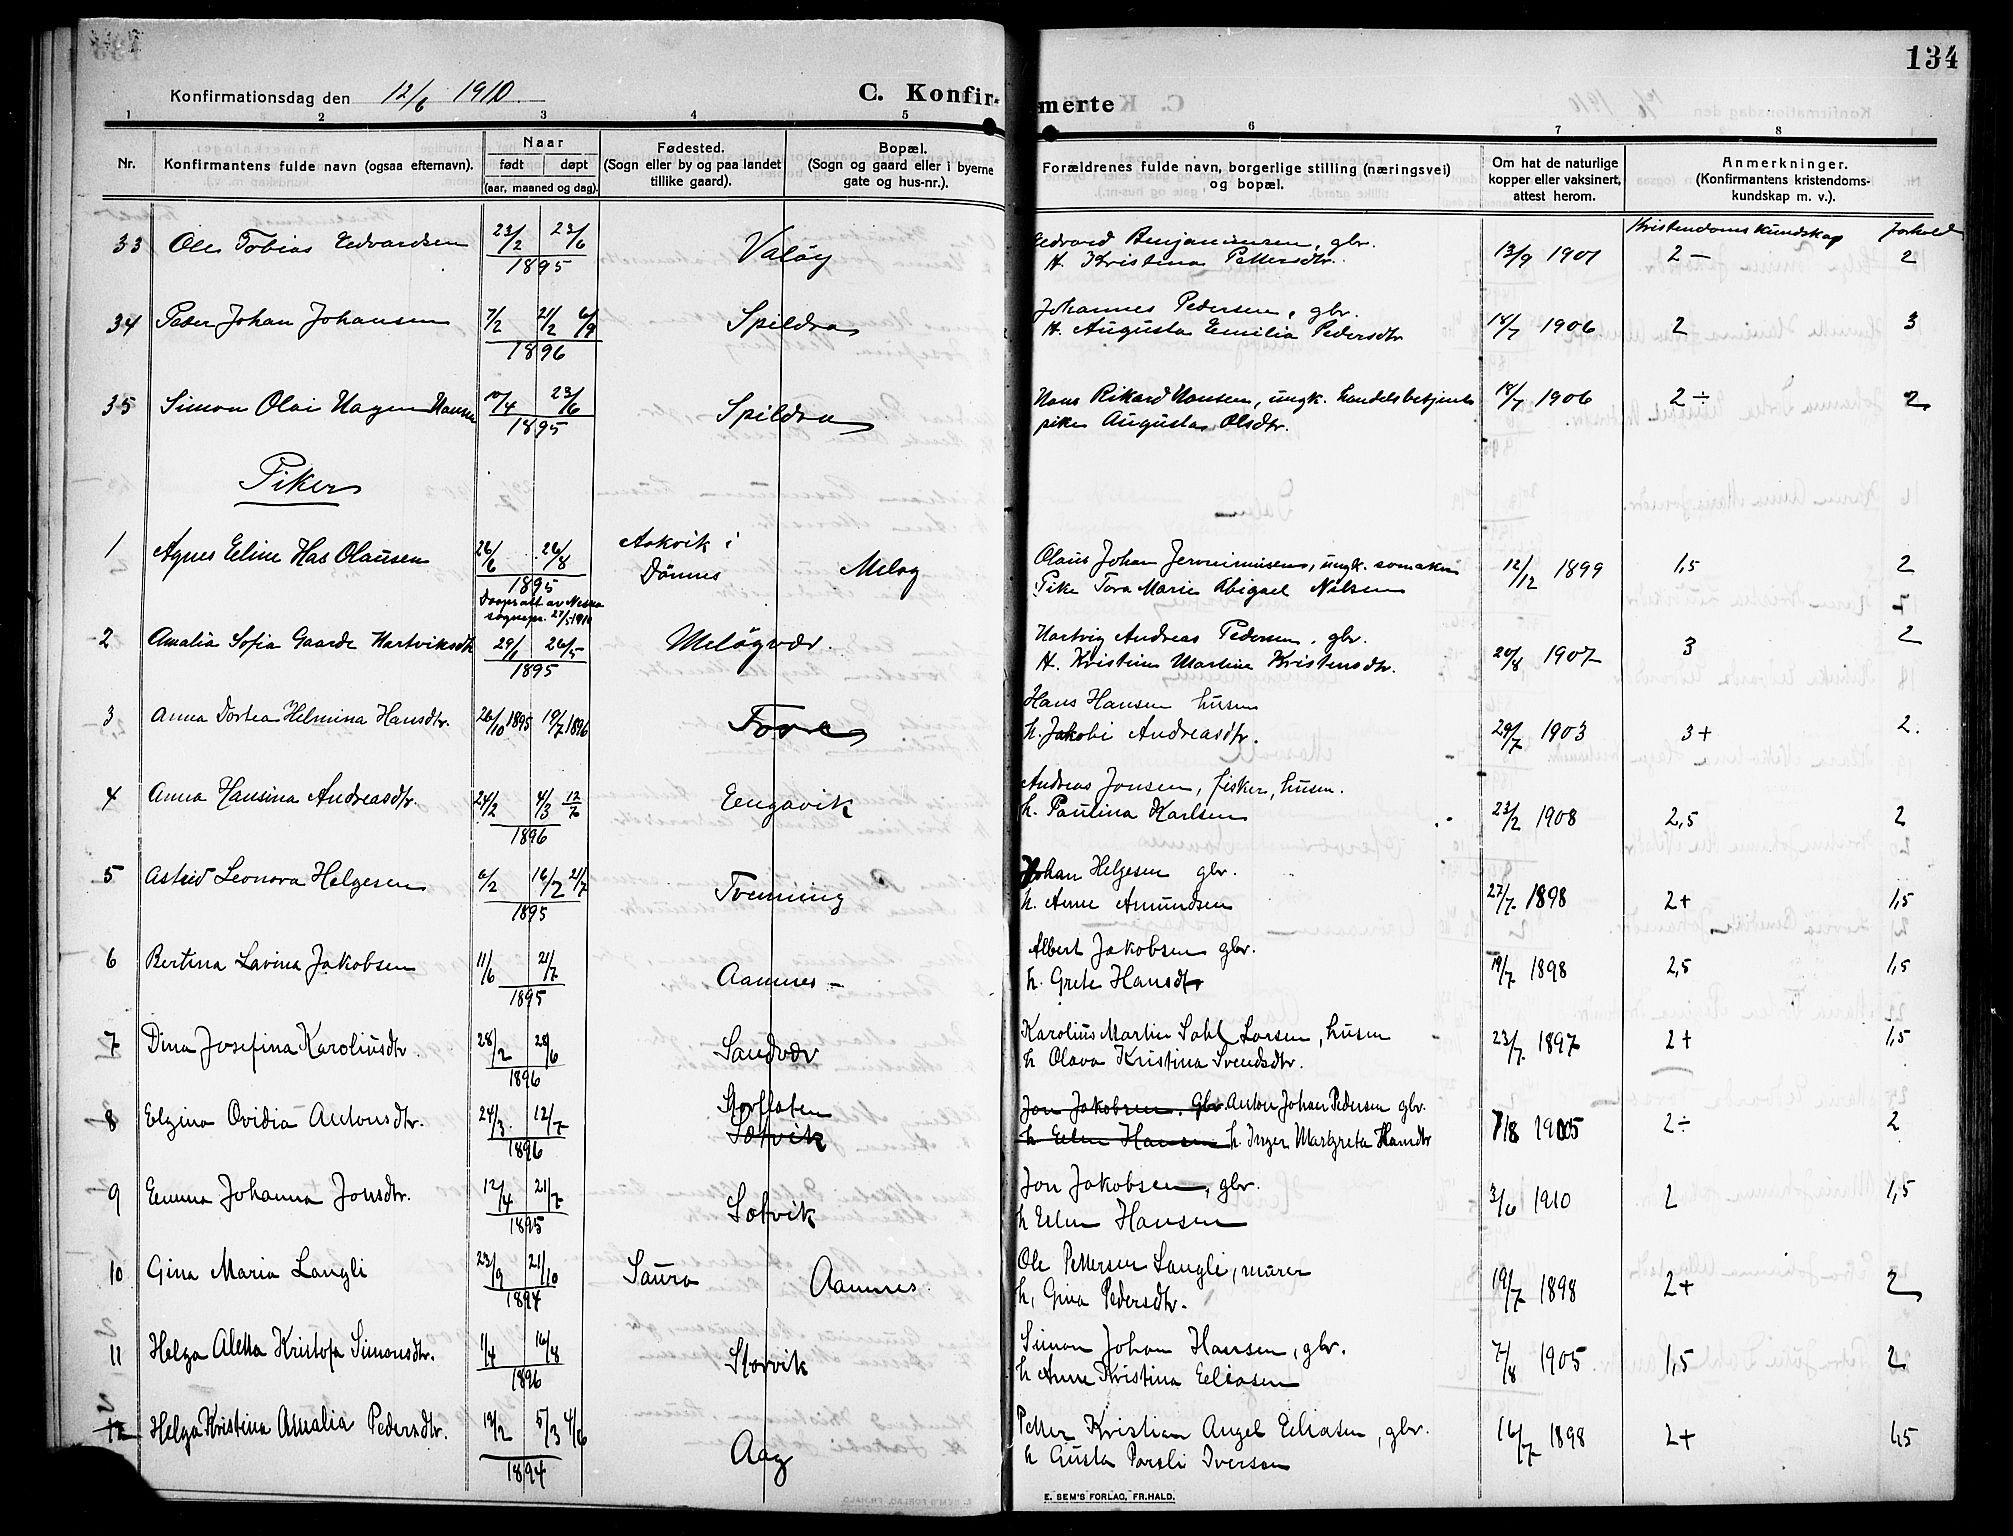 134
Konfirmationsdag den 12/6 1910.
C. Konfirmerte
1 2 3 4 5 6 7 8
Nr.
Konfirmantens fulde navn (ogsaa efternavn).
Naar
født døpt
(aar, maaned og dag).
Fødested.
(Sogn eller by og paa landet
tillike gaard).
Bopæl.
(Sogn og gaard eller i byerne
gate og hus-nr.).
Forældrenes fulde navn, borgerlige stilling (næringsvei)
og bopæl.
Om hat de naturlige
kopper eller vaksinert,
attest herom.
Anmerkninger.
(Konfirmantens kristendoms-
kundskap m. v.).
Kristendomskundskap Forhold
33 Ole Tobias Edvardsen 23/2 23/6 Valöy Edvard Benjaminsen, gbr. 13/9 1901 2 – 2
1895 H. Kristina Pettersdtr.
34 Peder Johan Johansen 7/2 21/2 6/9 Spildra Johannes Pedersen, gbr. 18/7 1906 2 3
1896 H. Augusta Emilia Pedersdtr
35 Simon Olai Hagen Hansen 10/4 23/6 Spildra Hans Rikard Hansen, ungk. handelsbetjent 18/7 1906 2 ÷ 2
1895 pike Augusta Olsdtr.
Piker
1 Agnes Eline Has Olausen 26/6 26/8 Askvik i Dönnes Meløy Olaus Johan Jeronimusen, ungk. 12/12 1899 1,5 2
1895 Pike Tora Marie Abigael Nilsen
Daapsatt av Nesna
sognepr. 27/5 1910
2 Amalia Sofia Gaarde Hartviksdtr 29/1 26/5 Meløyvær Hartvig Andreas Pedersen, gbr. 20/8 1907 3 2
1895 H. Kristine Martine Kristensdtr.
3 Anna Dortea Helmina Hansdtr. 26/10 1895 19/7 1896 Fore Hans Hansen husm 29/7 1903 3+ 2.
h. Jakobi Andreasdtr.
4 Anna Hansina Andreasdtr. 24/2 4/3 12/7 Eengavik Andreas Jonsen, fisker, husm. 23/2 1908 2,5 2
1896 h. Paulina Karlsen
5 Astrid Leonora Helgesen 6/2 16/2 21/7 Tvenning Johan Helgesen gbr. 27/7 1898 2+ 1,5
1895 h. Anne Amundsen
6 Bertina Lavina Jakobsen 11/6 21/7 Aamnes – Albert Jakobsen gbr. 19/7 1898 2,5 1,5
1895 h. Grete Hansdtr
7 Dina Josefina Karoliusdtr 28/2 28/6 Sandvær Karolius Martin Dahl Larsen, husm 23/7 1897 2+ 1,5
1896 h Olava Kristina Svendsdtr.
8 Elgina Ovidia Antonsdtr. 24/3 12/7 Storflaten Jon Jakobsen. Gbr. Anton Johan Pedersen gbr. 7/8 1905 2÷ 2
1896 Sætvik h Elen Hansen h. Inger Margreta Hansdtr
9 Emma Johanna Jonsdtr. 12/4 21/7 Sætvik Jon Jakobsen, gbr. 3/6 1910 2 1,5
1895 h Elen Hansen
10 Gina Maria Langli 23/9 21/10 Saura Aamnes. Ole Pettersen Langli, murer 19/7 1898 2+ 2
1894 h, Gina Pedersdtr.
11 Helga Aletta Kristofa Simonsdtr. 1/4 16/8 Storvik Simon Johan Hansen, gbr. 7/8 1905 1,5 2
1896 h Anne Kristina Eeliasen
12 Helga Kristina Amalia Pedersdtr. 19/2 5/3 4/6 Aag Petter Kristian Angel Eeliasen, gbr. 16/7 1898 2+ 1,5
1894 h Gusta Parsli Iversen
E. SEM'S FORLAG, FR.HALD.